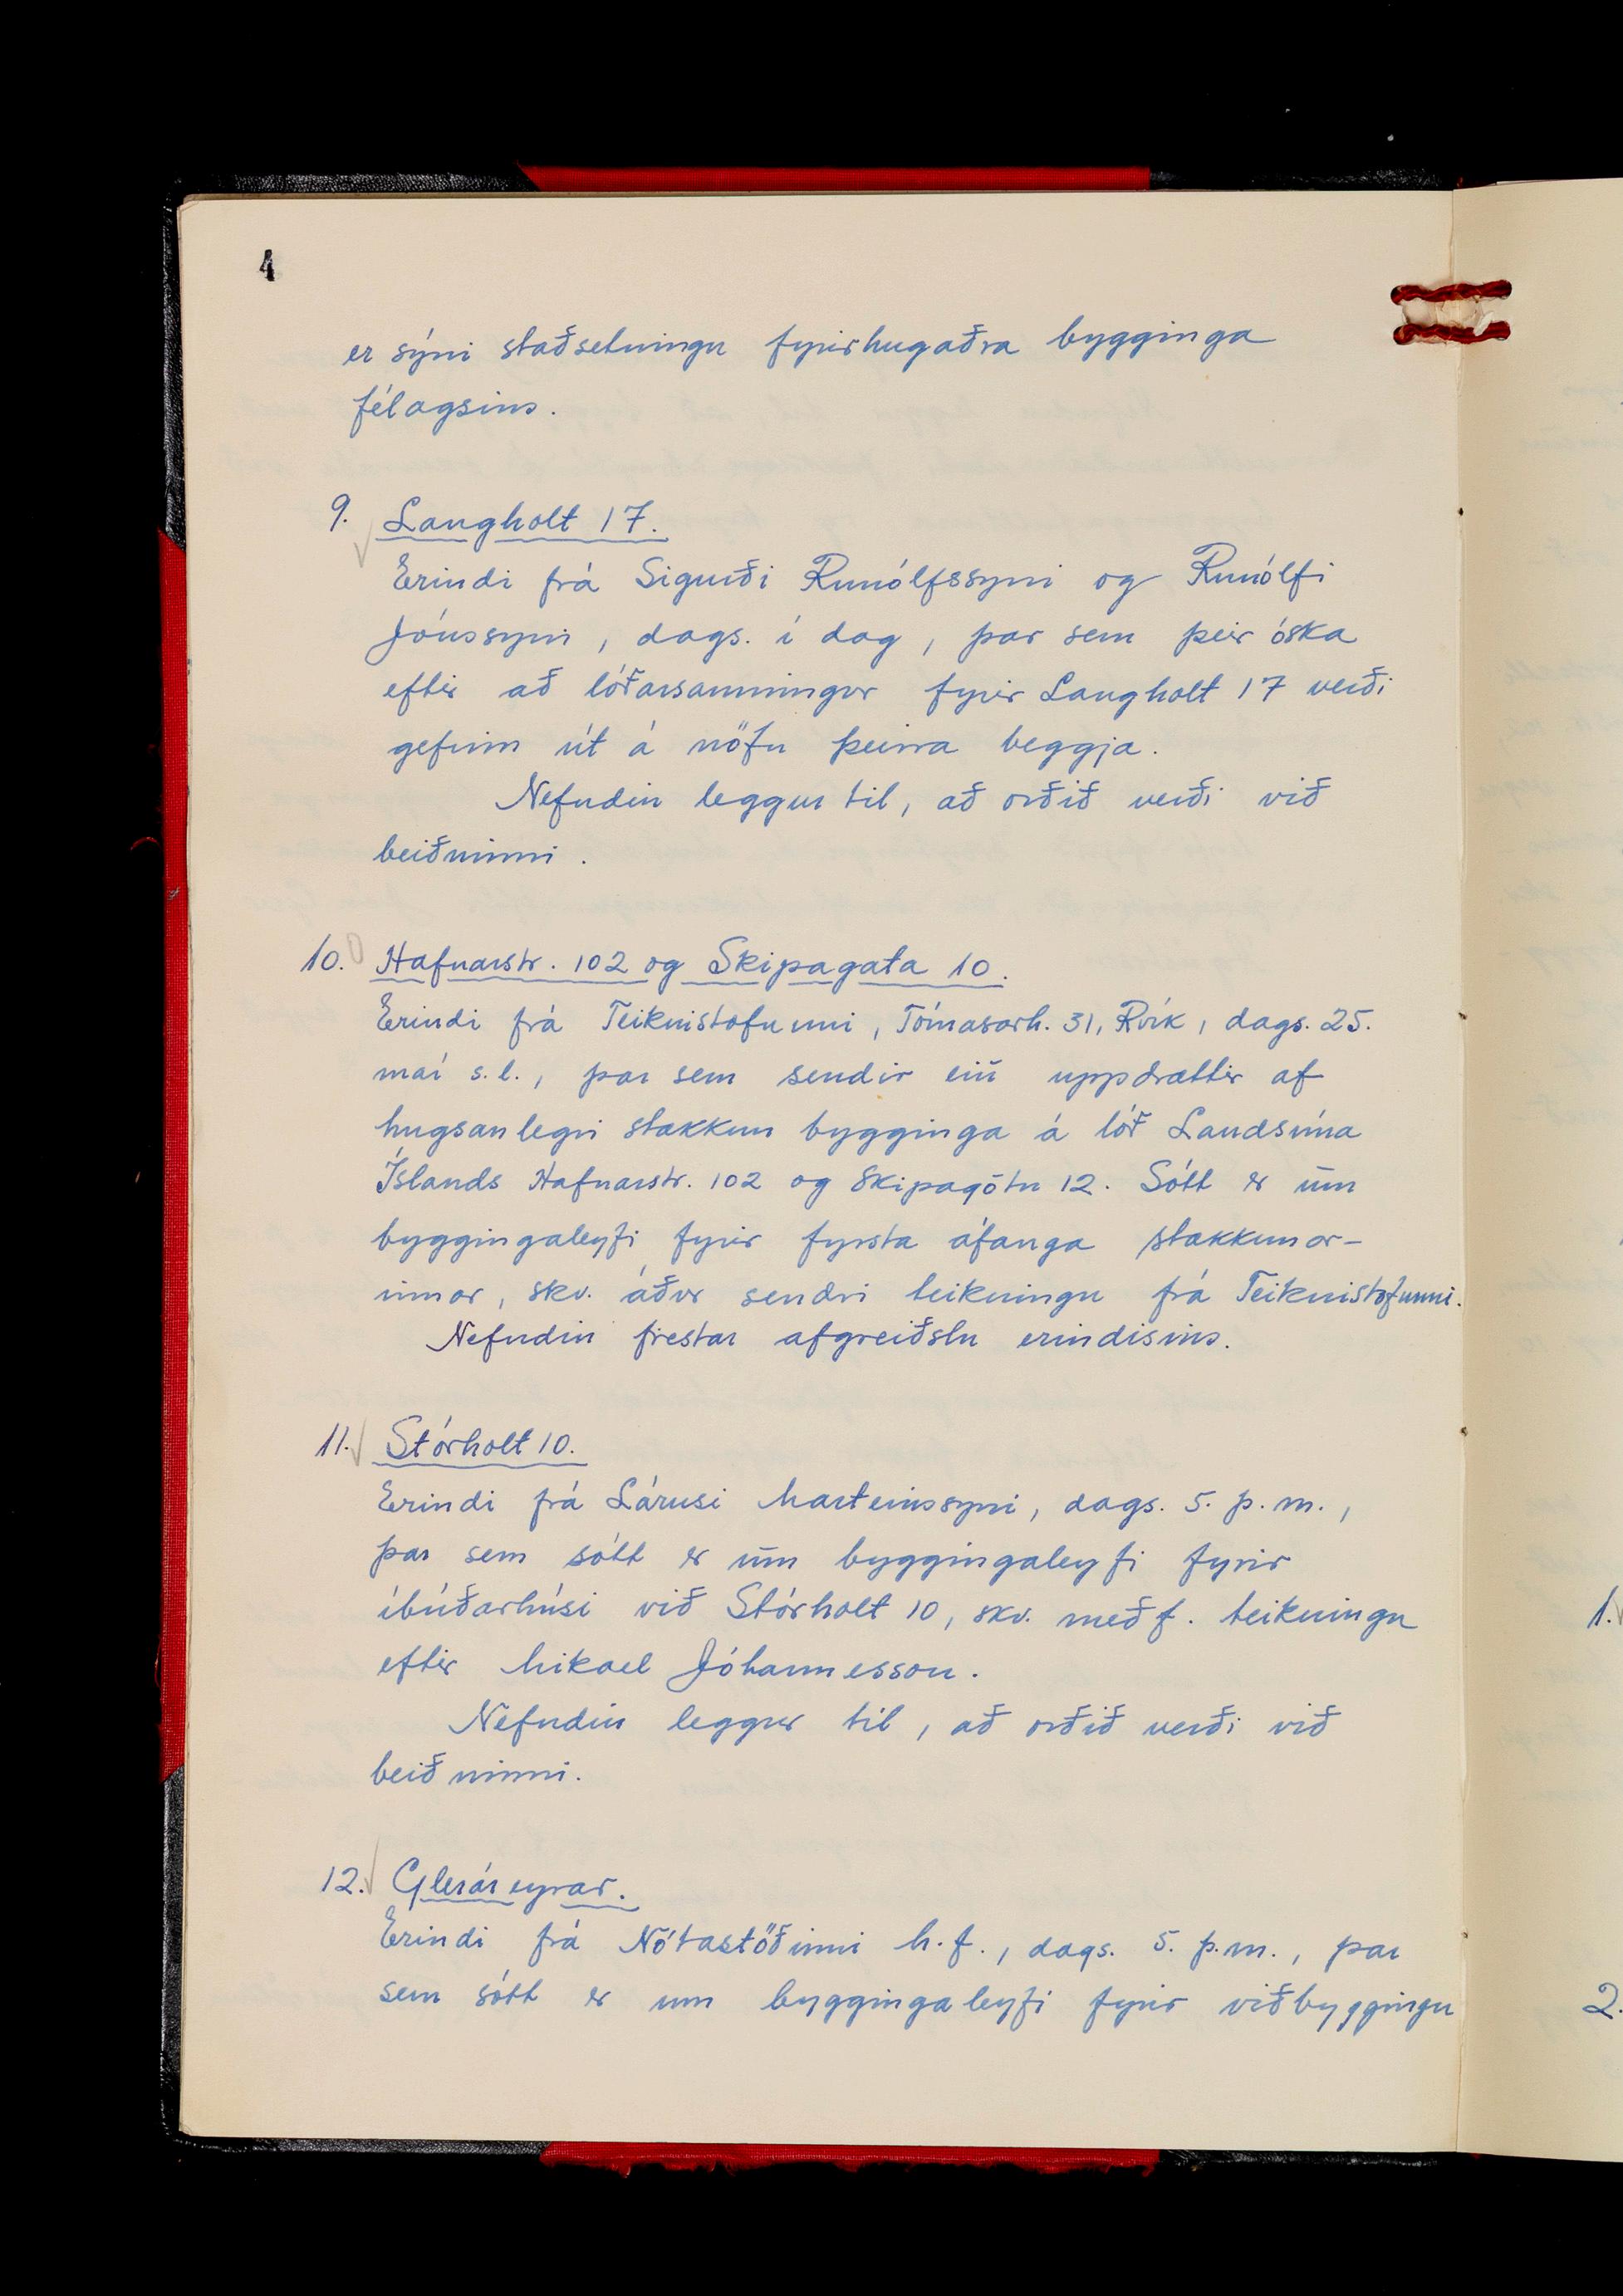 4
er sýni staðsetningu fyrirhugaðra bygginga
félagsins.
9. Langholt 17.
Erindi frá Sigurði Runólfssyni og Runólfi
Jónssyni, dags. í dag, þar sem þeir óska
eftir að lóðarsamningur fyrir Langholt 17 verði
gefinn út á nöfn þeirra beggja.
Nefndin leggur til, að orðið verði við
beiðninni.
10. Hafnarstr. 102 og Skipagata 10.
Erindi frá Teiknistofunni, Tómasarh. 31, Rvík, dags. 25.
maí s.l., þar sem sendir eru uppdrættir af
hugsanlegri stækkun bygginga á lóð Landsíma
Íslands Hafnarstr. 102 og Skipagötu 12. Sótt er um
byggingaleyfi fyrir fyrsta áfanga stækkunar-
innar, skv. áður sendri teikningu frá Teiknistofunni.
Nefndin frestar afgreiðslu erindisins.
11. Stórholt 10.
Erindi frá Lárusi Marteinssyni, dags. 5. þ.m.,
þar sem sótt er um byggingaleyfi fyrir
íbúðarhúsi við Stórholt 10, skv. meðf. teikningu
eftir Mikael Jóhannesson.
Nefndin leggur til, að orðið verði við
beiðninni.
12. Gleráreyrar.
Erindi frá Nótastöðinni h.f., dags. 5. þ.m., þar
sem sótt er um byggingaleyfi fyrir viðbyggingu
1.
2.